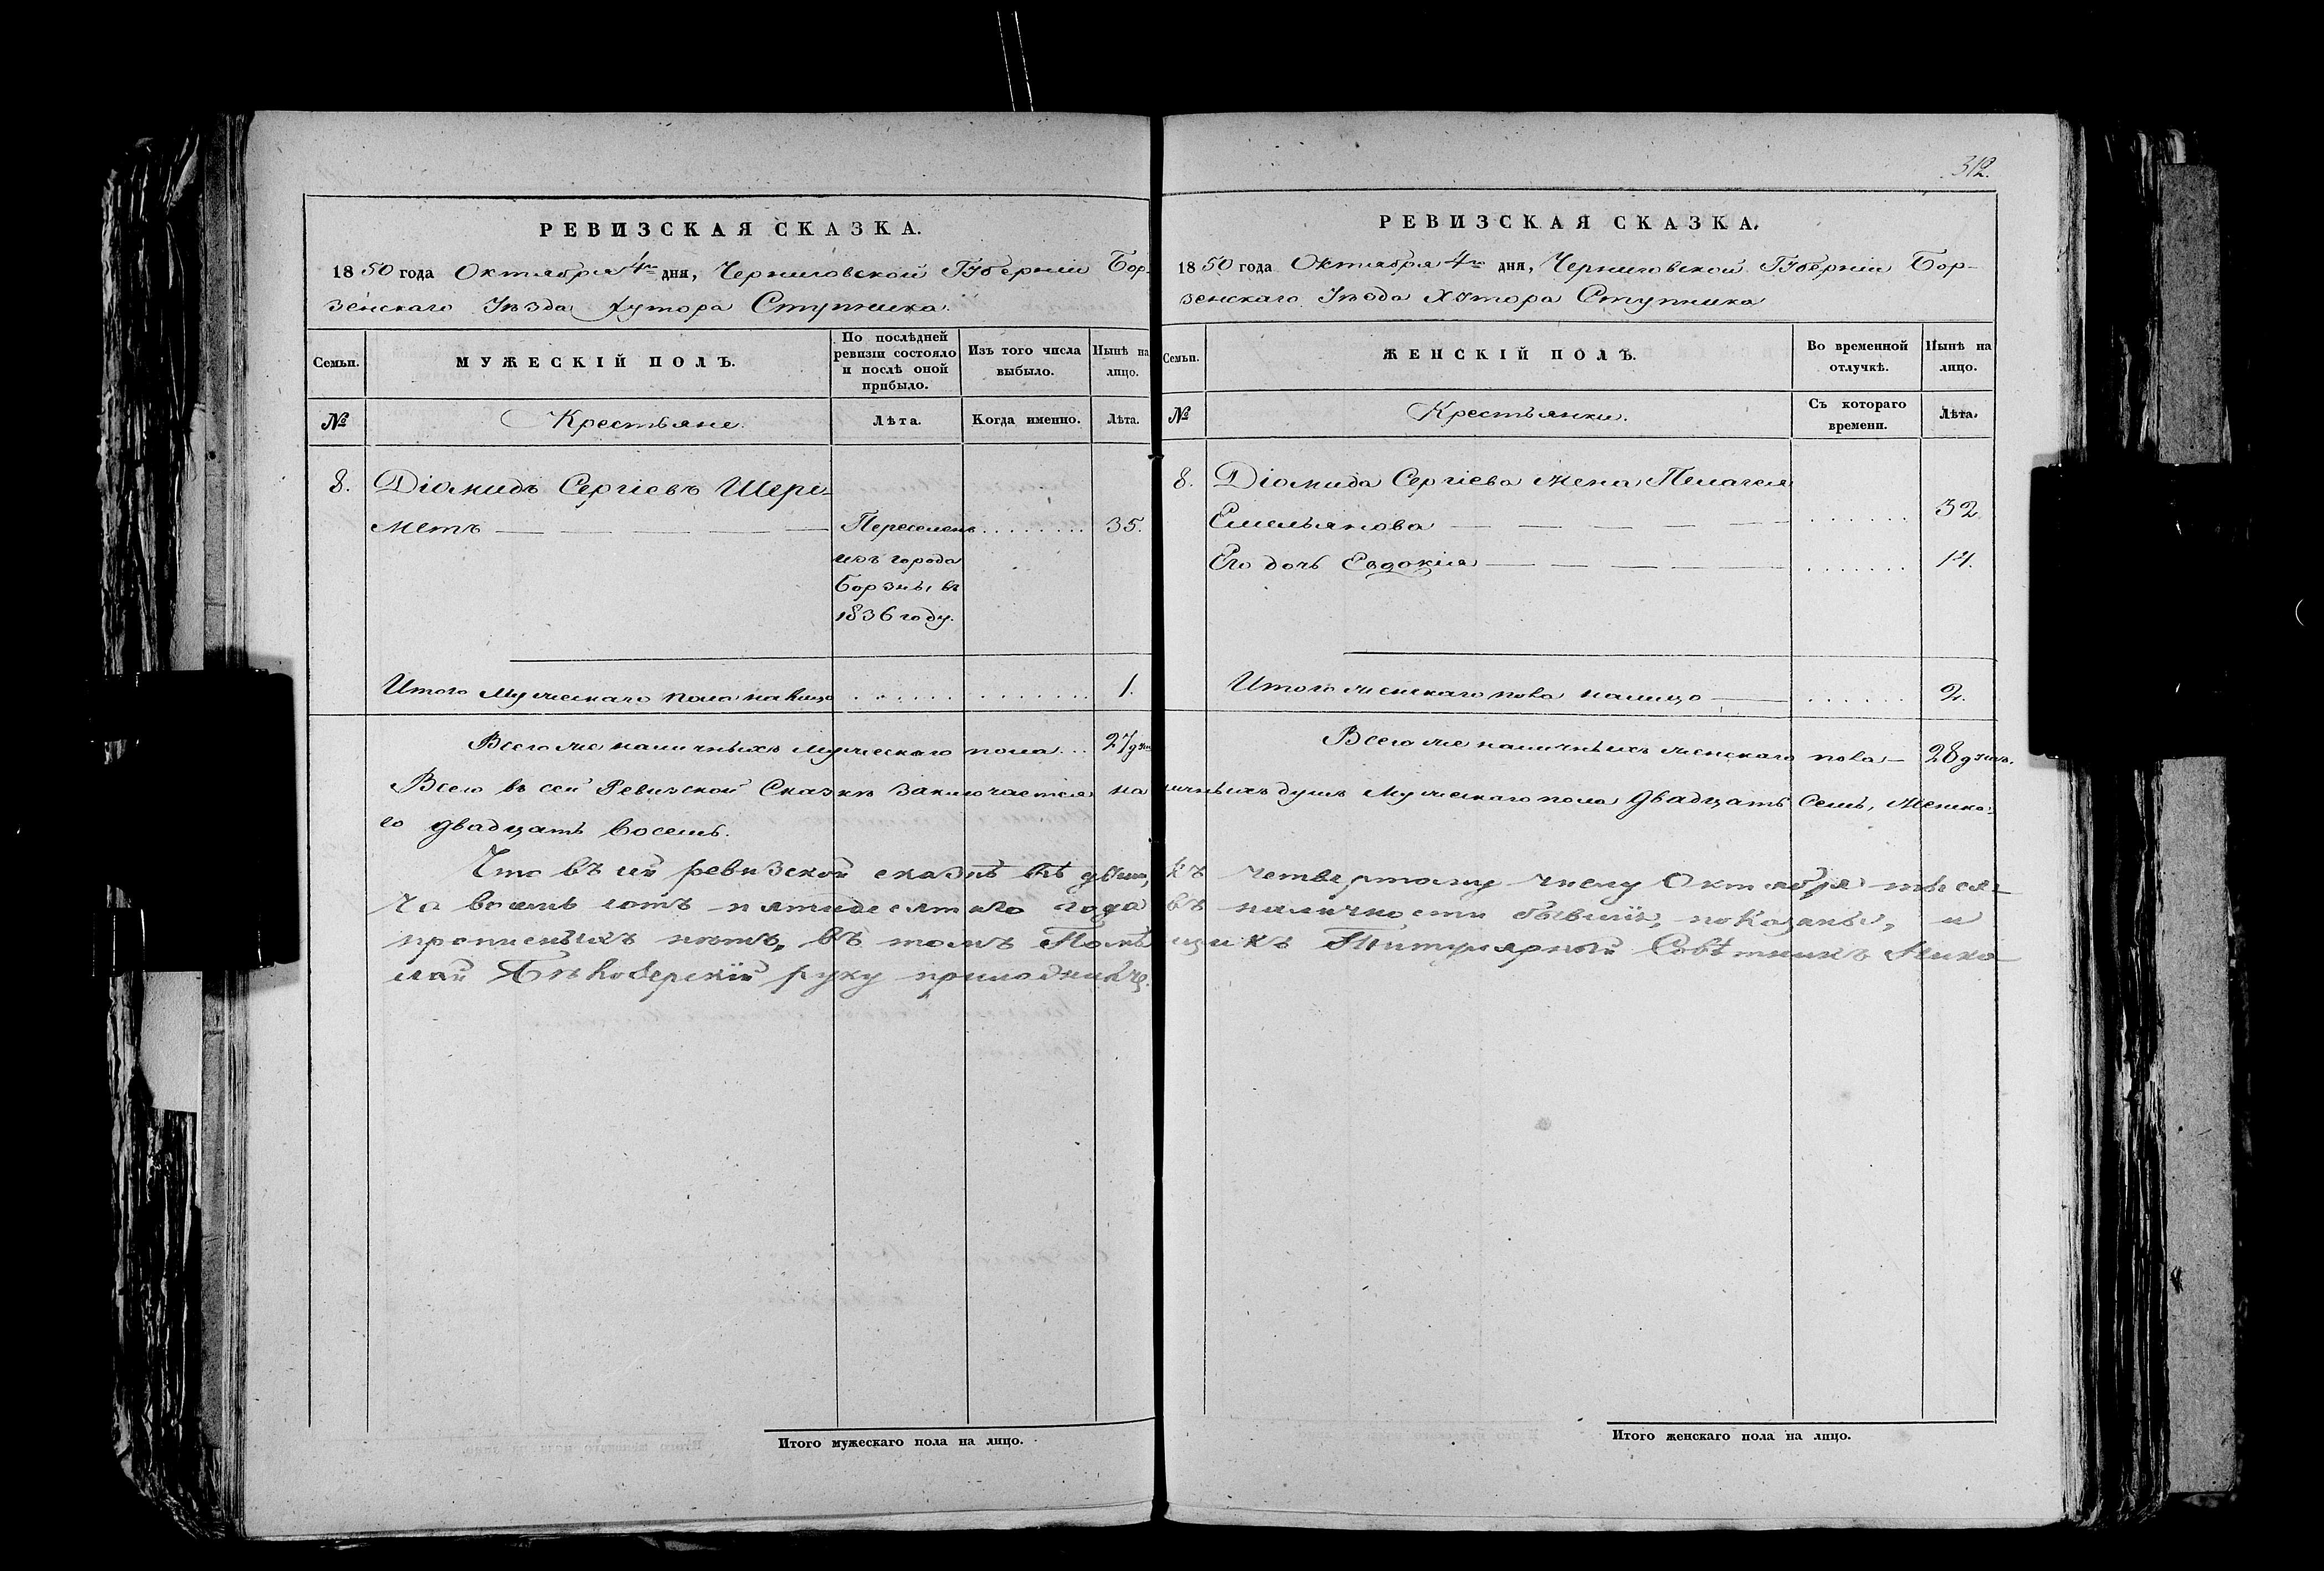 312.
РЕВИЗСКАЯ СКАЗКА.
1850 года Октября 4го дня, Черниговской Губерніи Бор-
зенскаго Уѣзда Хутора Ступника.
Семьи.
МУЖЕСКІЙ ПОЛЪ.
По послѣдней
ревизіи состояло
и послѣ оной
прибыло.
Изъ того числа
выбыло.
Нынѣ на
лицо.
№
Крестьяне.
Лѣта.
Когда именно.
Лѣта.
8. Діомидъ Сергіевъ Шере-
метъ Переселенъ 35.
изъ города
Борзны, въ
1836 году.
Итого мужескаго пола налицо 1.
Всего же наличныхъ мужескаго пола 27 душ
РЕВИЗСКАЯ СКАЗКА.
1850 года Октября 4го дня, Черниговской Губерніи Бор-
зенскаго Уѣзда Хутора Ступника
Семьи.
ЖЕНСКІЙ ПОЛЪ.
Во временной
отлучкѣ.
Нынѣ на
лицо.
№
Крестьянки.
Съ котораго
времени.
Лѣта.
8. Діомида Сергіева жена Пелагея
Емельянова 32
Его дочь Евдокія 14.
Итого женскаго пола налицо 2.
Всего же наличныхъ женскаго пола 28 душъ.
Всего въ сей Ревизской Сказкѣ заключается наличныхъ душъ мужескаго пола двадцать семь, женска-
го двадцать восемь.
Что въ сей ревизской сказкѣ всѣ души, къ четвертому числу Октября тыся-
ча восемь сотъ пятидесятаго года въ наличности бывшія, показаны, и
прописныхъ нѣтъ, въ томъ Помѣщикъ Титулярный Совѣтникъ Нико-
лай руку приложилъ.
Итого мужескаго пола на лицо.
Итого женскаго пола на лицо.